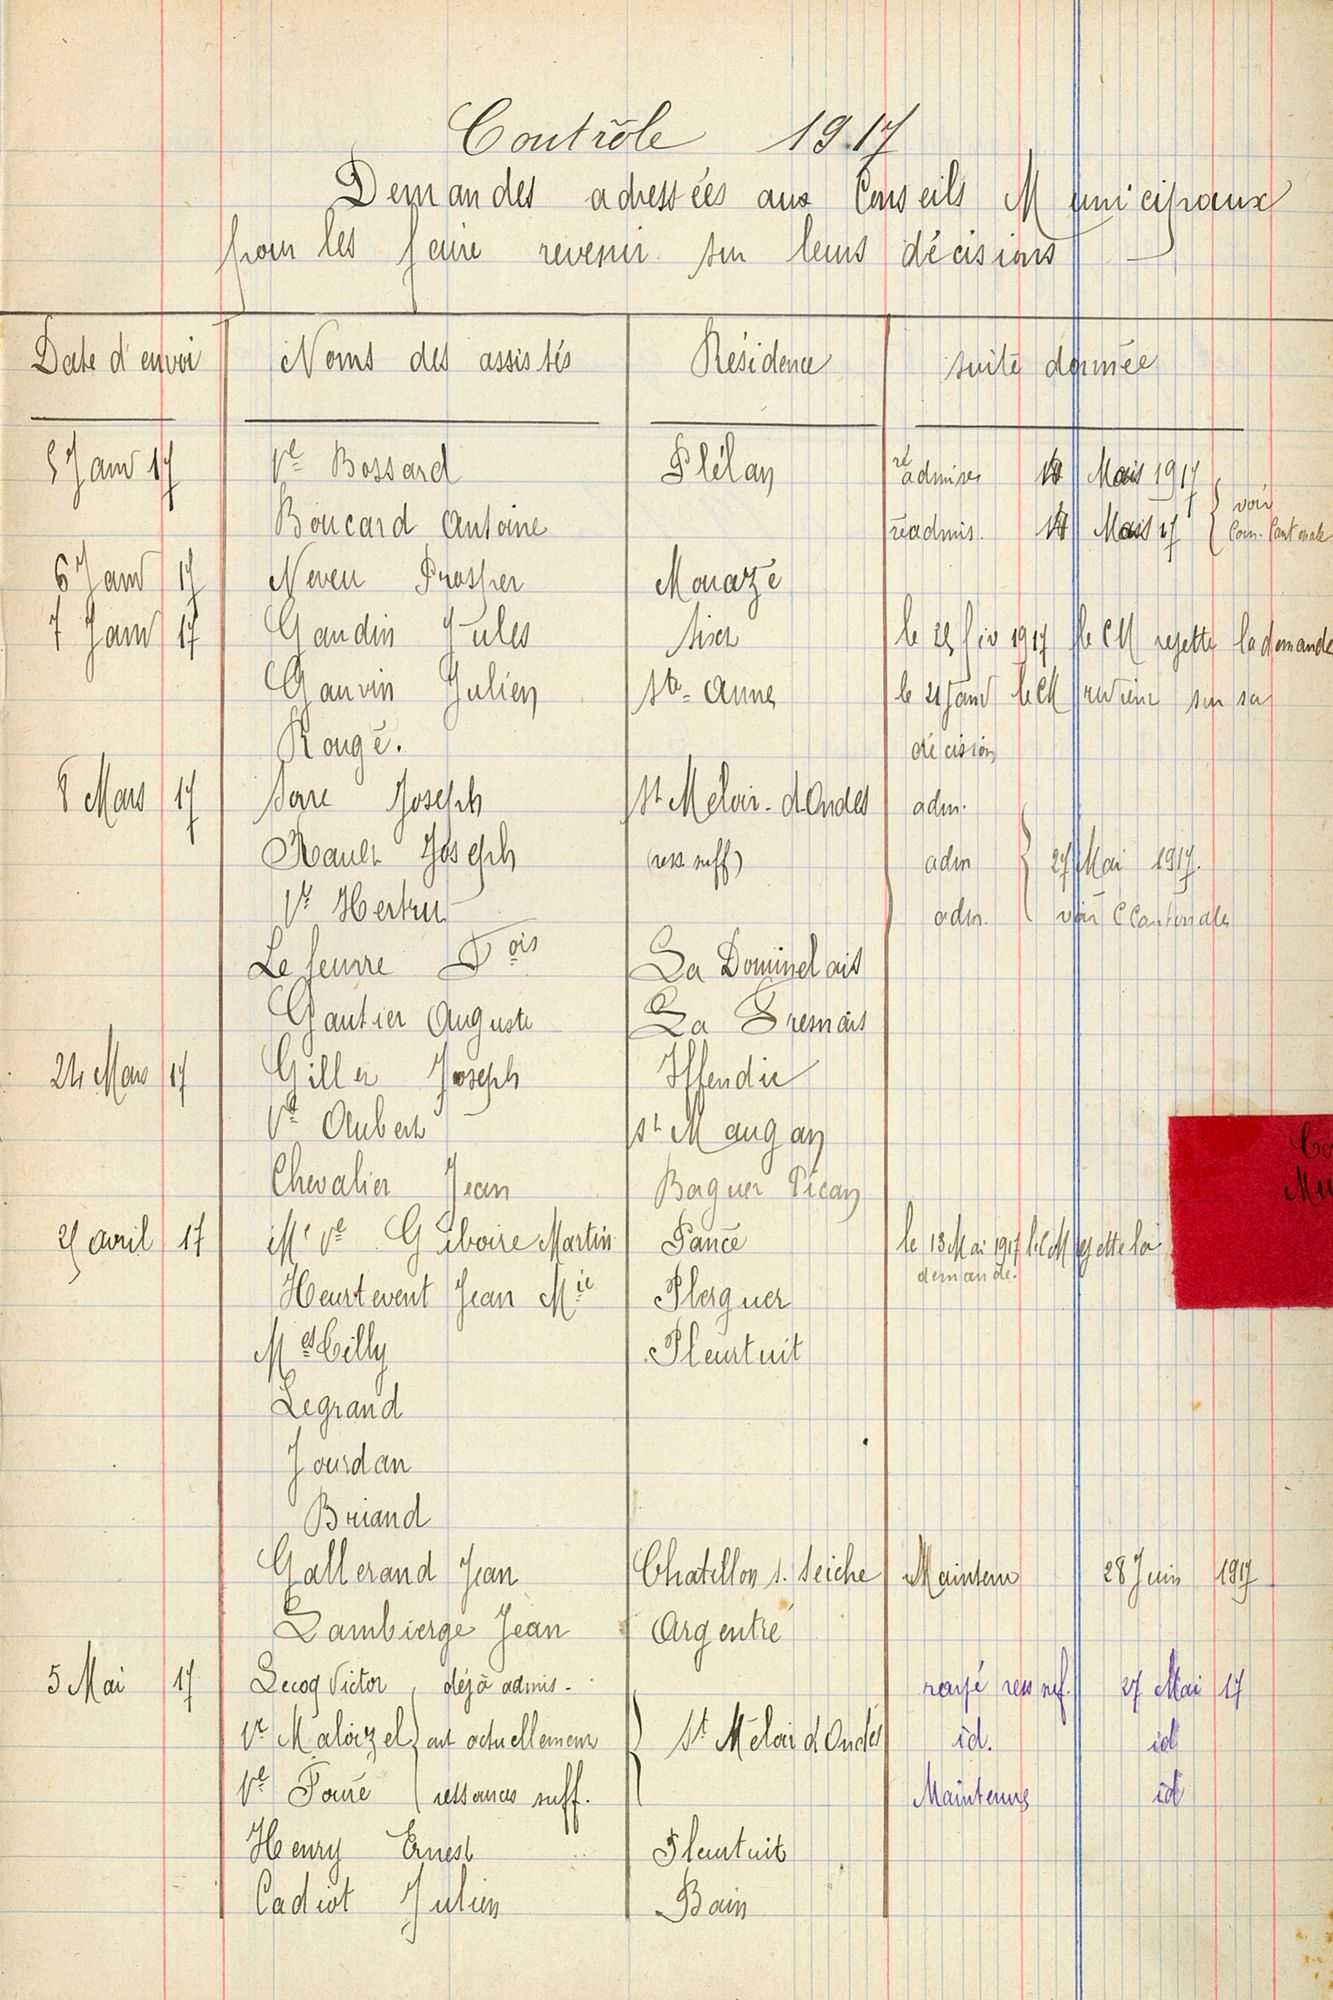 Contrôle 1917
Demandes adressées aux Conseils Municipaux
pour les faire revenir sur leurs décisions
Date d'envoi Noms des assistés Résidence suite donnée
5 Janv 17 Ve Bossard Plélan réadmises Mais 1917
Boucard Antoine réadmis. Mais 17 voir Com. Cantonale
6 Janv 17 Neveu Prosper Mouazé
7 Janv 17 Gaudin Jules le 25 fév 1917 le CM rejette la demande
Gauvin Julien Ste-Anne le 21 Janv le CM revient sur sa
Rougé. décision
8 Mars 17 Serre Joseph St Méloir-d'Ondes adm.
Rault Joseph (ress suff) adm 27 Mai 1917.
Ve Hertru adm. voir C Cantonale
Lefeuvre Fois La Dominelais
Gautier Auguste La Fresnais
24 Mars 17 Giller Joseph Iffendic
Ve Aubert St Maugan
Chevalier Jean Baguer Pican
25 avril 17 Me Ve Guiboire Martin Pancé le 13 Mai 1917 le CM rejette la
demande.
Heurtevent Jean Mie Plerguer
Mes Cilly Pleurtuit
Legrand
Jourdan
Briand
Gallerand Jean Chatillon s. Seiche Maintenu 28 Juin 1917
Lambierge Jean Argentré
5 Mai 17 Lecoq Victor déjà admis. rayé ress suf. 27 Mai 17
Ve Maloizel ont actuellement St Méloir d'Ondes id. id
Ve Fouré ressources suff. Maintenue id
Henry Ernest Pleurtuit
Cadiot Julien Bain